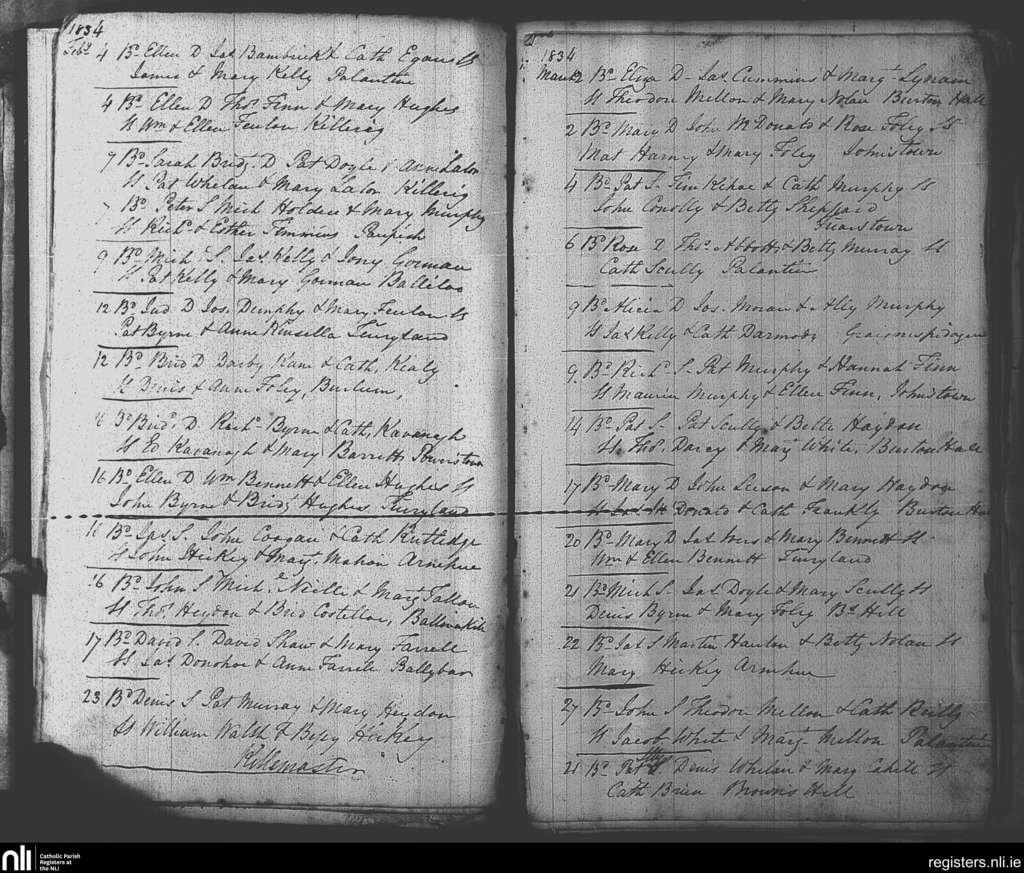 1834
Feby 4 Bd Ellen D Jas Bambrick & Cath Egan Ss
James & Mary Kelly Palantine
4 Bd Ellen D Thos Finn & Mary Hughes
Ss Wm & Ellen Fenlon Killerig
7 Bd Sarah Bridt D Pat Doyle & Ann Lalor
Ss Pat Whelan & Mary Lalor Killerig
Bd Peter S Mich Holden & Mary Murphy
Ss Richd & Esther Timmins
9 Bd Mich S. Jas Kelly & Gorman
Ss Pat Kelly & Mary Gorman
12 Bd Jud D Jos. Dunphy & Mary Fenlon Ss
Pat Byrne & Anne Kinsella Fairyland
12 Bd Brid D Darby Kane & Cath. Kealy
Ss Denis & Ann Foley,
Bd Brid. D. Richd Byrne & Cath. Kavanagh
Ss Ed Kavanagh & Mary Barrett Powerstown
16 Bd Ellen D Wm Bennett & Ellen Hughes Ss
John Byrne & Bridt Hughes Fairyland
16 Bd S. John Coogan & Cath Rutledge
Ss John Hickey & Margt. Mahon
16 Bd John S Mich. Neille & Margt Fallon
Ss Thos. Heydon & Brid Costelloe,
17 Bd David S. David Shaw & Mary Farrell
Ss Jas Donohoe & Ann Farrell Ballybar
23 Bd Denis S Pat Murray & Mary Heydon
Ss William Walsh & Hickey
1834
March 2 Bd Eliza D Jas Cummins & Margt Lynam
Ss Theodore Mellon & Mary Nolan Burton Hall
2 Bd Mary D John McDonald & Rose Foley Ss
Mat Harney & Mary Foley Johnstown
4 Bd Pat S. Tim Kehoe & Cath Murphy Ss
John Conolly & Betty Sheppard
Friarstown
6 Bd Rose D Thos. Abbott & Betty Murray Ss
Cath Scully Palantine
9 Bd Alicia D Jos. Moran & Ally Murphy
Ss Jas Kelly & Cath Darmody
9 Bd Richd S. Pat Murphy & Hannah Finn
Ss Murphy & Ellen Finn, Johnstown
14 Bd Pat S. Pat Scully & Bette Haydon
Ss Thos. Darcy & Mary White, Burton Hall
17 Bd Mary D John & Mary Haydon
Ss Jas McDonald & Cath Frankly Burton
20 Bd Mary D Jas Ivers & Mary Bennett Ss
Wm & Ellen Bennett Fairyland
21 Bd Mich S. Jas Doyle & Mary Scully Ss
Denis Byrne & Mary Foley Bs Hill
22 Bd Jas S Martin Hanlon & Betty Nolan Ss
Mary Hickey
27 Bd John S Theodore Mellon & Cath Reilly
Ss Jacob White & Margt Mellon Palantine
21 Bd Pat S Denis Whelan & Mary Cahill Ss
Cath Brien Browns Hill
nli
Catholic Parish
Registers at
the NLI
registers.nli.ie